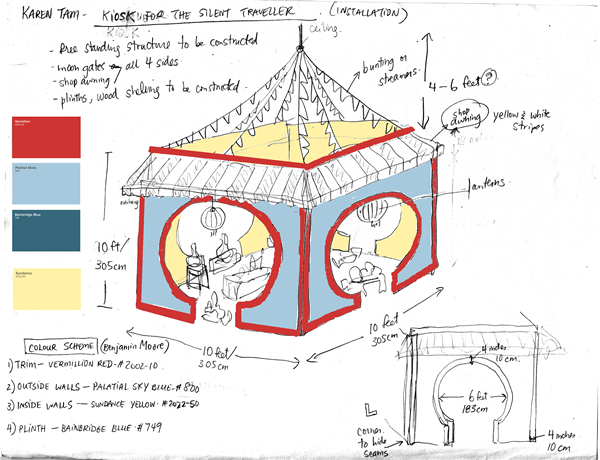 KAREN TAM - KIOSK FOR THE SILENT TRAVELLER. (INSTALLATION)
KIOSK
ceiling.
- free standing structure to be constructed
- moon gates → all 4 sides
- shop awning
- plinths, wood shelving to be constructed
bunting or streamers
4-6 feet?
shop awning
yellow & white stripes
Vermilion
Palatial Skies
Bainbridge Blue
Sundance
lanterns
awning
10 ft/
305cm
10 feet/
305cm
10 feet
305cm
COLOUR SCHEME (Benjamin Moore)
1) TRIM - VERMILLION RED - #2002-10
2) OUTSIDE WALLS - PALATIAL SKY BLUE - #800
3) INSIDE WALLS - SUNDANCE YELLOW - #2022-50
4) PLINTH - BAINBRIDGE BLUE - #749
4 inches
10 cm.
6 feet
183cm
corner.
to hide
seams
4 inches
10 cm